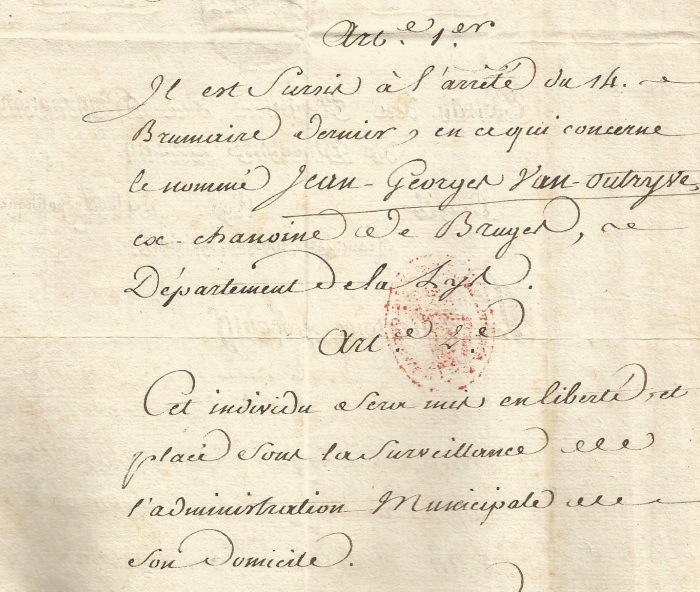 Art.e 1.er
Il est sursis à l'arrêté du 14.
Brumaire dernier, en ce qui concerne
le nommé Jean-Georges Van-outryve,
ex-chanoine de Bruges,
Département de la Lys.
Art.e 2.e
Cet individu sera mis en liberté, et
placé sous la surveillance de
l'administration Municipale de
son domicile.